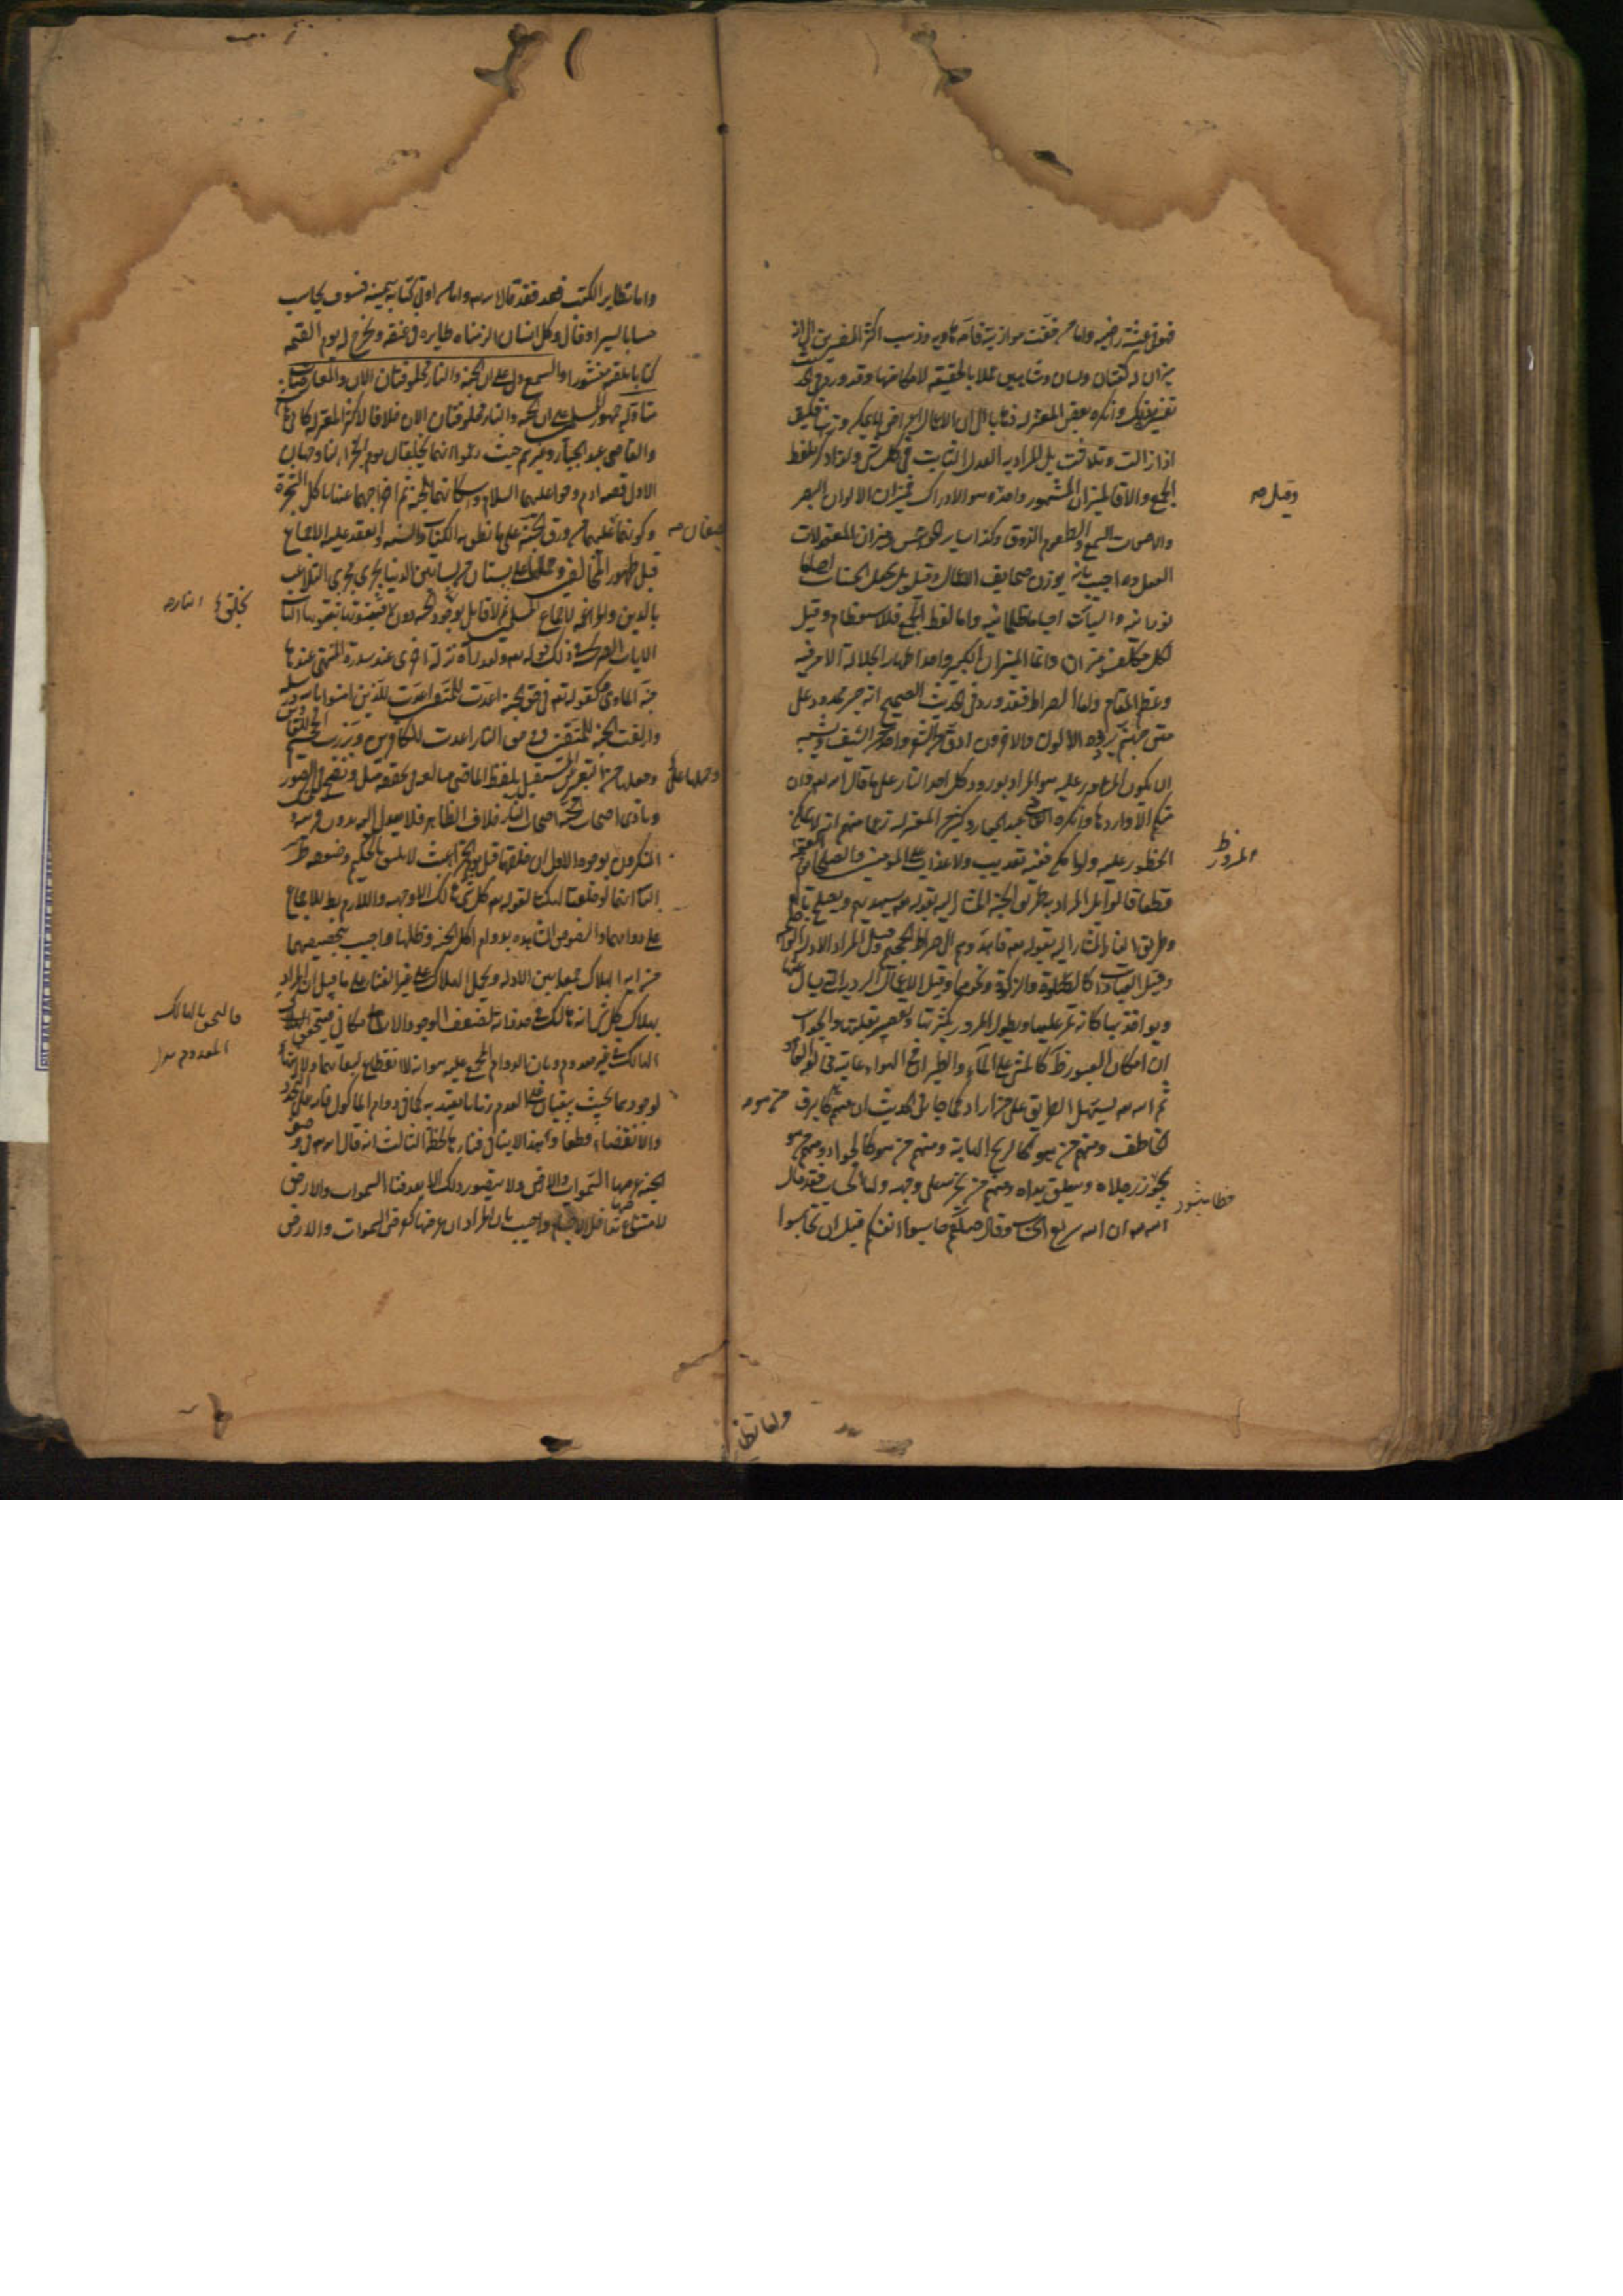 فهو في عيشة راضية واما من خفّت موازينه فامه هاويه وذهب اكثر المفسرين الى انه
ميزان له كفتان ولسان وشاهين عملا بالحقيقة لامكانها وقد ورد في الحديث
تفسيره بذلك وانكره بعض المعتزلة ذهابا الى ان الاعمال اعراض لا يمكن وزنها فكيف
اذا زالت وتلاشت بل المراد به العدل الثابت في كل شي ولذا ذكر بلفظ
الجمع والا فالميزان المشهور واحد وقيل هو الادراك فميزان الالوان البصر
والاصوات السمع والطعوم الذوق وكذا ساير الحواس وميزان المعقولات
العقل واجيب بانه يوزن صحايف الاعمال وقيل بل يجعل الحسنات اجساما
نورانية والسيآت اجساما ظلمانية واما لفظ الجمع فللاستعظام وقيل
لكل مكلف ميزان وانما الميزان الكبير واحد اظهارا لجلالة الامر فيه
وعظم المقام واما الصراط فقد ورد في الحديث الصحيح انه جسر ممدود على
متن جهنم يرده الاولون والاخرون ادق من الشعر واحد من السيف ويشبه
ان يكون المرور عليه هو المراد بورود كل احد النار على ما قال الله تعالى وان
منكم الا واردها وانكره القاضي عبد الجبار وكثير من المعتزلة زعما منهم انه لا يمكن
الخطور عليه ولو امكن ففيه تعذيب ولا عذاب على المؤمنين والصلحاء يوم القيمة
قطعا قالوا بل المراد به طريق الجنة المشار اليه بقوله تعالى سيهديهم ويصلح بالهم
وطريق النار المشار اليه بقوله تعالى فاهدوهم الى صراط الجحيم وقيل المراد الادلة الواضحة
وقيل العبادات كالصلوة والزكوة ونحوهما وقيل الاعمال الردية التي يسأل عنها
ويؤاخذ بها كانه يمر عليها ويطول المرور بكثرتها ويقصر بقلتها والجواب
ان امكان العبور ظ كالمشي على الماء والطيران في الهواء غايته مخالفة العادة
ثم الله تعالى يسهل الطريق على من اراد كما جاء في الحديث ان منهم من هو كالبرق
الخاطف ومنهم من هو كالريح الهابة ومنهم من هو كالجواد ومنهم من هو
تجوز رجلاه وتعلق يداه ومنهم من يخر على وجهه واما الحساب فقد قال
الله تعالى ان الله سريع الحساب وقال صلعم حاسبوا انفسكم قبل ان تحاسبوا
وقيل
المرور ظ
واما تطاير
واما تطاير الكتب فقد قال الله تعالى واما من اوتي كتابه بيمينه فسوف يحاسب
حسابا يسيرا وقال وكل انسان الزمناه طايره في عنقه ونخرج له يوم القيمة
كتابا يلقيه منشورا والسمع دل على ان الجنة والنار مخلوقتان الان والمعارضات
متاولة جمهور المسلمين على ان الجنة والنار مخلوقتان الان خلافا لاكثر المعتزلة كابي هاشم
والقاضي عبد الجبار وغيرهم حيث زعموا انهما يخلقان يوم الجزاء لنا وجهان
الاول قصة ادم وحوا عليهما السلام واسكانهما الجنة ثم اخراجهما عنها باكل الشجرة
وكونهما يخصفان عليهما من ورق الجنة على ما نطق به الكتاب والسنة وانعقد عليه الاجماع
قبل ظهور المخالفين وحملها على بستان من بساتين الدنيا يجري مجرى التلاعب
بالدين والمراغمة لاجماع المسلمين ثم لا قايل بوجود الجنة دون النار فثبوتها ثبوتها الثاني
الايات الصريحة في ذلك قوله تعالى ولقد رآه نزلة اخرى عند سدرة المنتهى عندها
جنة الماوى وكقوله تعالى في حق الجنة اعدت للمتقين اعدت للذين امنوا بالله ورسله
وازلفت الجنة للمتقين وفي حق النار اعدت للكافرين وبرزت الجحيم للغاوين
وحملها على التعبير عن المستقبل بلفظ الماضي مبالغة في تحققه مثل ونفخ في الصور
ونادى اصحاب الجنة اصحاب النار خلاف الظاهر فلا يعدل اليه بدون قرينة
المنكرون بوجوه الاول ان خلقهما قبل يوم الجزاء عبث لا يليق بالحكيم وضعفه ظ
الثاني انهما لو خلقتا لهلكتا لقوله تعالى كل شي هالك الا وجهه واللازم بط للاجماع
على دوامهما والنصوص الشاهدة بدوام اكل الجنة وظلها واجيب بتخصيصهما
من اية الهلاك جمعا بين الادلة وبحمل الهلاك على غير الفناء على ما قيل ان المراد
بهلاك كل شي انه هالك في حد ذاته لضعف الوجود الامكاني
الهالك غير معدوم وبان الدوام المجمع عليه هو انه لا انقطاع لبقائهما ولا انتهاء
لوجودهما بحيث يبقيان على العدم زمانا يعتد به كما في دوام الماكول فانه على التجدد
والانقضاء قطعا وهذا لا ينافي فناء لحظة الثالث انه قال الله تعالى في وصف
الجنة عرضها السموات والارض ولا يتصور ذلك الا بعد فناء السموات والارض
لامتناع تداخل الاجسام واجيب بان المراد ان عرضها كعرض السموات والارض
فالتحق بالهالك
المعدوم